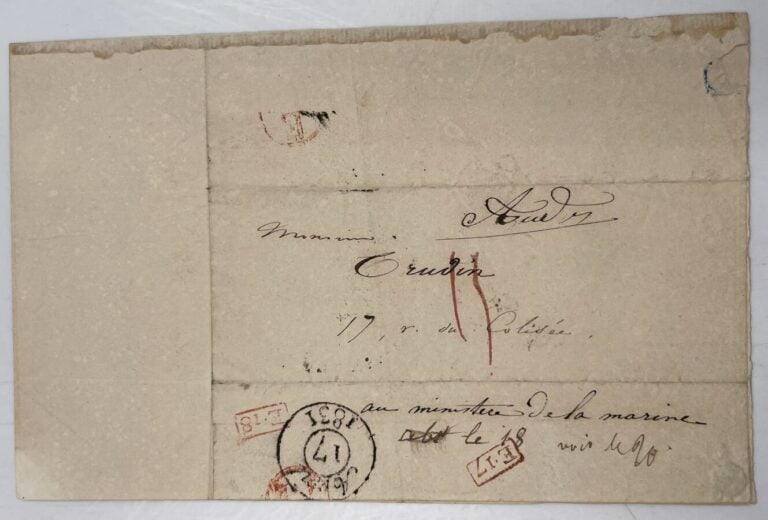 E
Monsieur
Trudin
17, r. du Colisée.
au ministère de la marine
abst le 18
voir le 20
E·18
1831
17
E·17